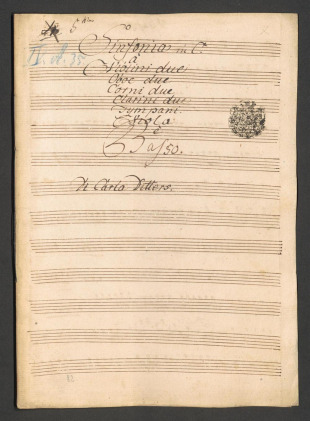 Sinfonia in C.
à
Violini due
Oboe due
Corni due
Clarini due
Tympani
Viola
e
Basso.
Di Carlo Ditters.